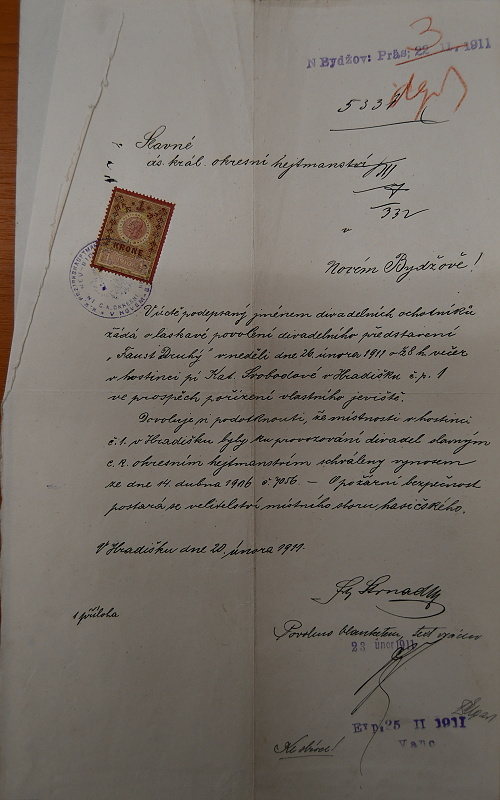 N Bydžov: Präs. 22 II. 1911
3
533
Slavné
cís. král. okresní hejtmanství
III
7
332
v
Novém Bydžově!
Uctě podepsaný jménem divadelních ochotníků
žádá o laskavé povolení divadelního představení
„Faust Druhý" v neděli dne 26. února 1911 o 8 h. večer
v hostinci pí Kat. Svobodové v Hradišku č.p. 1
ve prospěch pořízení vlastního jeviště.
Dovoluje si podotknouti, že místnosti v hostinci
č. 1. v Hradišku byly ku provozování divadel slavným
c. k. okresním hejtmanstvím schváleny vynosem
ze dne 14. dubna 1906 č. 7056 — O požární bezpečnost
postará se velitelství místního sboru hasičského.
V Hradišku dne 20. února 1911.
Strnad
1 příloha
Povoleno blanketem, text vrácen
23 únor 1911
Exp. 25 II 1911
KRONE